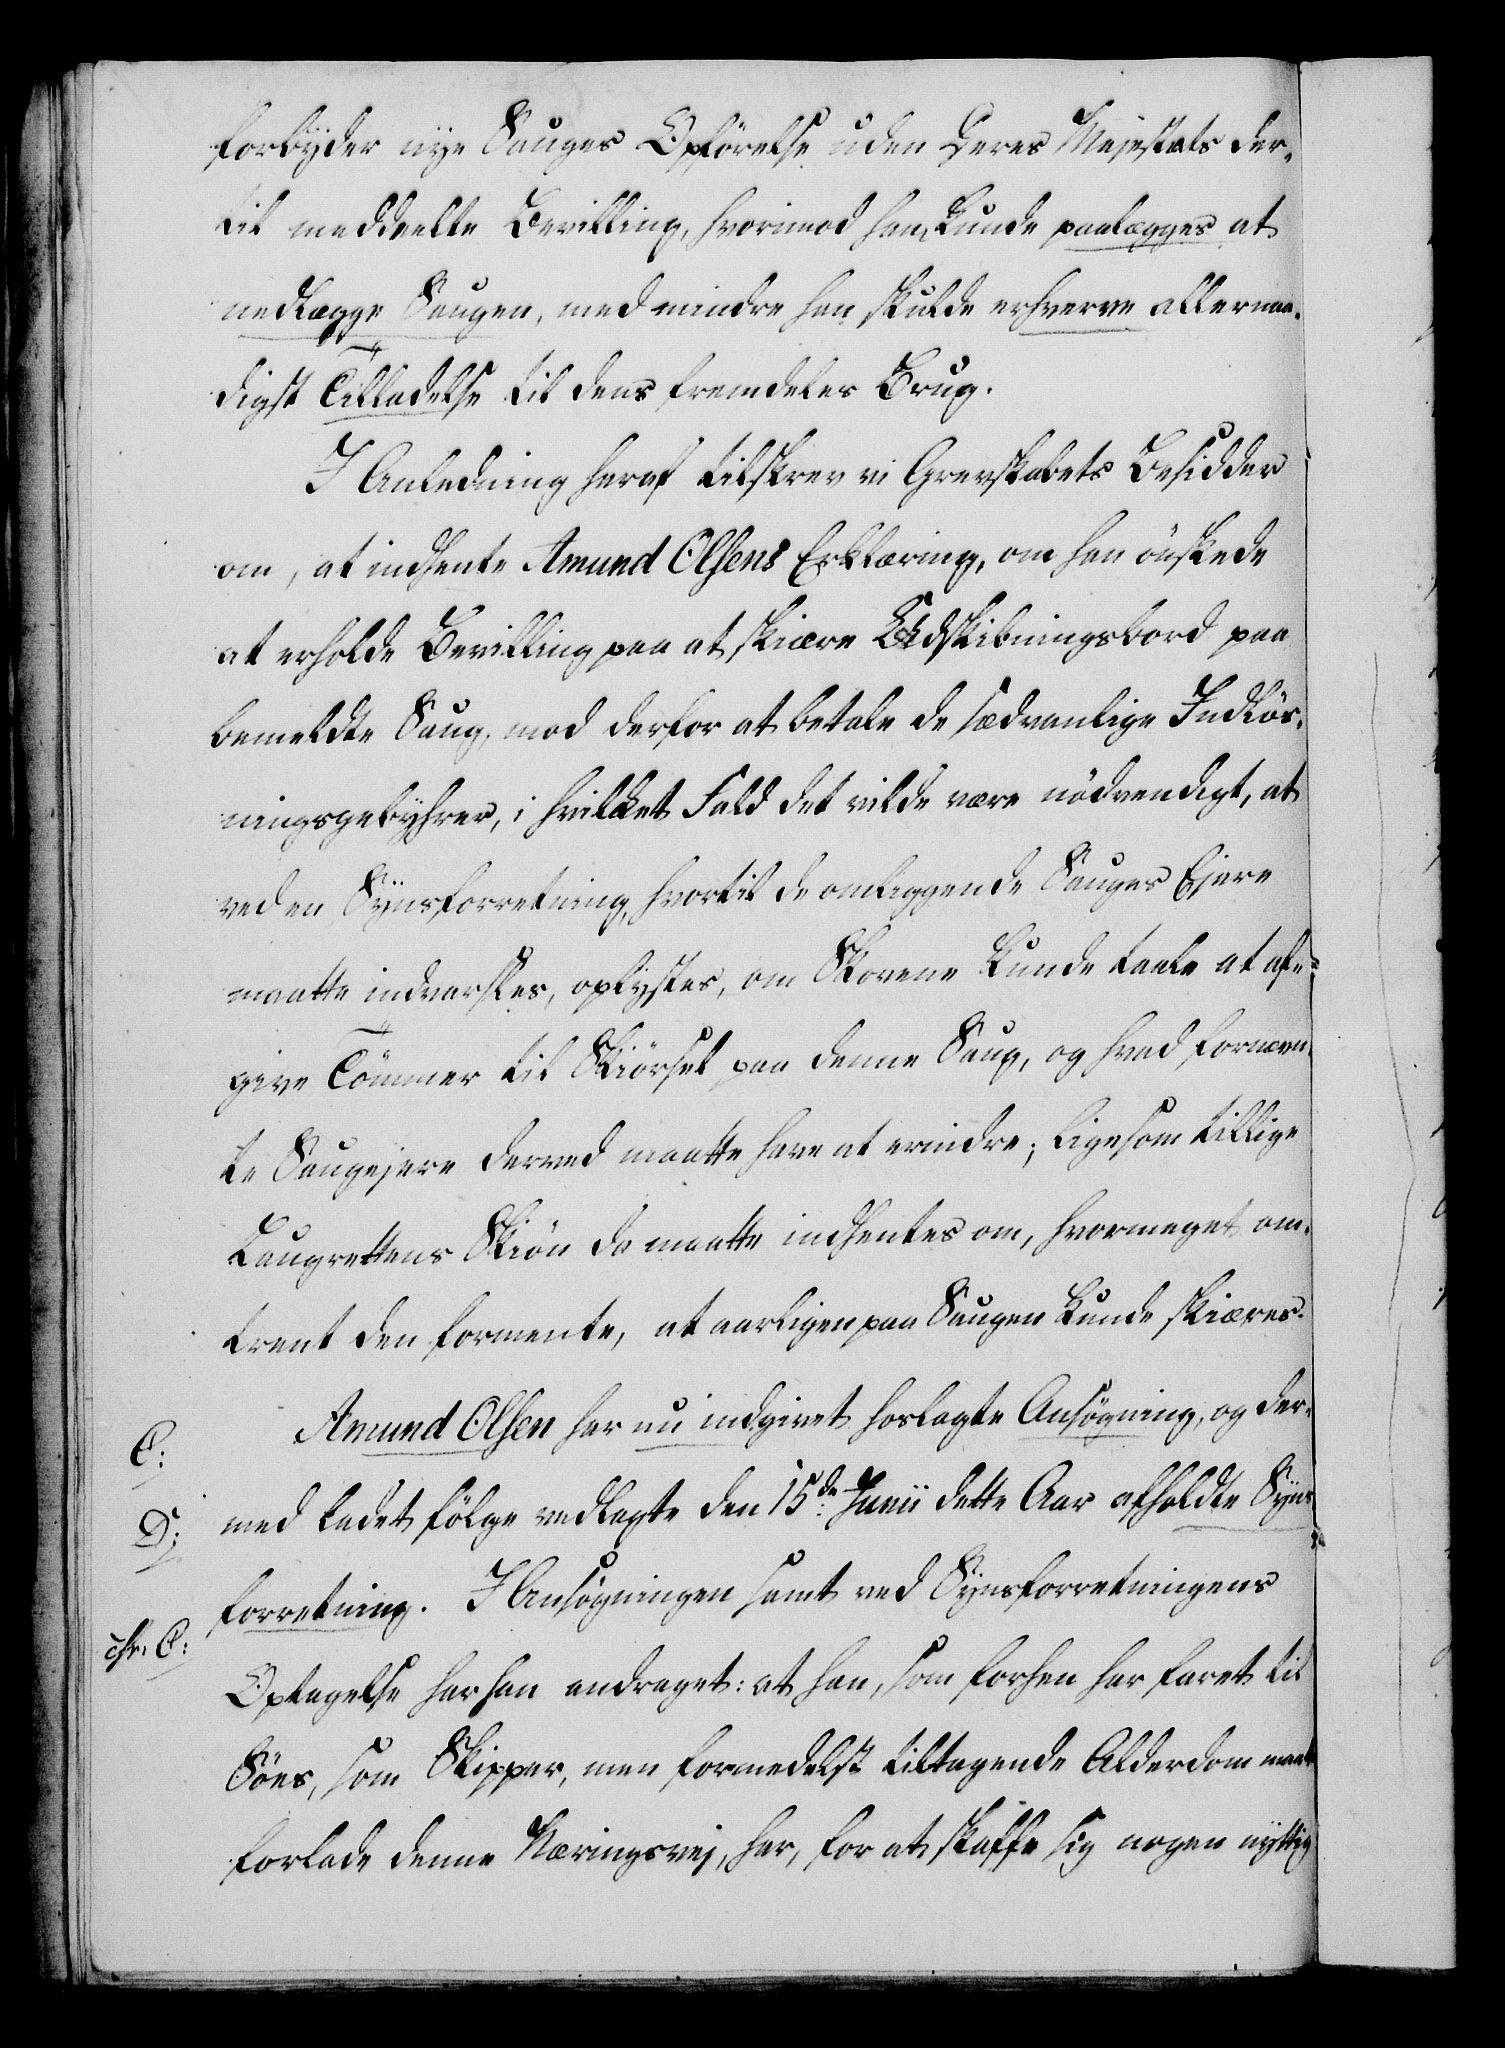 forbÿder nÿe Sauges Opförelse uden Deres Majestæts der-
til meddeelte Bevilling, hvorimod ham kunde paalægges at
nedlægge Saugen, med mindre han skulde erhverve allernaa-
digst Tilladelse til dens fremdeles Brug.
I Anledning heraf tilskrev vi Grevskabets Besidder
om, at indhente Amund Olsens Erklæring, om han önskede
at erholde Bevilling paa at skiære Udskibningsbord paa
bemeldte Saug, mod derfor at betale de sædvanlige Indlös-
ningsgebÿhrer, i hvilket Fald det vilde være nödvendigt, at
ved en Sÿnsforretning, hvortil de omliggende Sauges Ejere
maatte indvarsles, oplystes, om Skovene kunde taale at afe-
give Tömmer til Skiörsel paa denne Saug, og hvad fornævn-
te Saugejere derved maatte have at erindre; ligesom tillige
Laugrettens Skiön da maatte indhentes om, hvormeget om-
trent den formente, at aarligen paa Saugen kunde skiæres.
Amund Olsen har nu indgivet hoslagte Ansögning, og der-
C:
med ladet fölge vedlagte den 15de Junii dette Aar afholdte Sÿns
D:
forretning. I Ansögningen samt ved Sÿnsforretningens
cfr. C:
Optagelse har han andraget: at han, som forhen har faret til
Söes, som Skipper, men formedelst tiltagende Alderdom maatte
forlade denne Næringsvej, har, for at skaffe sig nogen nÿttig